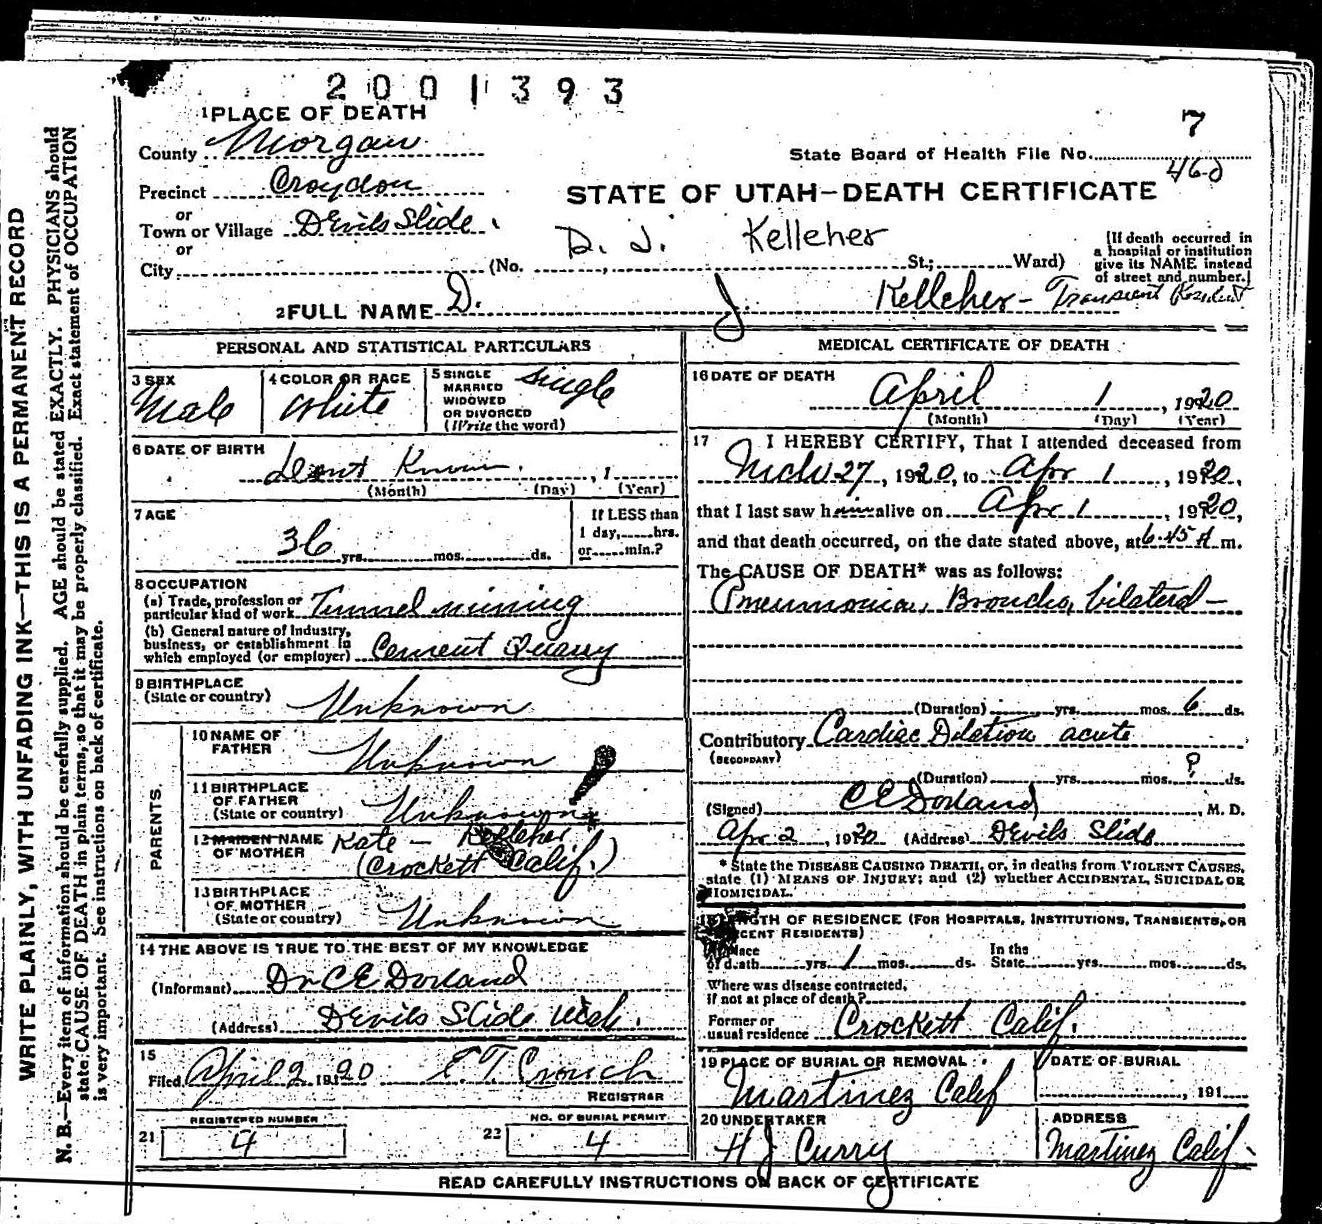 2001393
1 PLACE OF DEATH
7
County Morgan
State Board of Health File No. 460
Precinct Croydon
STATE OF UTAH—DEATH CERTIFICATE
or
Town or Village Devils Slide.
or
D. J. Kelleher
City (No. , St.; Ward)
(If death occurred in
a hospital or institution
give its NAME instead
of street and number.)
2 FULL NAME D. J. Kelleher - Transient Resident
PERSONAL AND STATISTICAL PARTICULARS
3 SEX
Male
4 COLOR OR RACE
White
5 SINGLE
MARRIED
WIDOWED
OR DIVORCED
(Write the word)
Single
6 DATE OF BIRTH
Dont Know , 1
(Month) (Day) (Year)
7 AGE
36 yrs. mos. ds.
If LESS than
1 day, hrs.
or min.?
8 OCCUPATION
(a) Trade, profession or
particular kind of work Tunnel mining
(b) General nature of Industry,
business, or establishment in
which employed (or employer) Cement Quarry
9 BIRTHPLACE
(State or country) Unknown
PARENTS
10 NAME OF
FATHER Unknown
11 BIRTHPLACE
OF FATHER
(State or country) Unknown
12 MAIDEN NAME
OF MOTHER Kate - Kelleher
(Crockett Calif.)
13 BIRTHPLACE
OF MOTHER
(State or country) Unknown
14 THE ABOVE IS TRUE TO THE BEST OF MY KNOWLEDGE
(Informant) Dr C E Dorland
(Address) Devils Slide Utah.
15
Filed April 2 1920 E. T. Crouch
REGISTRAR
REGISTERED NUMBER
21 4
NO. OF BURIAL PERMIT
22 4
MEDICAL CERTIFICATE OF DEATH
16 DATE OF DEATH
April 1 , 1920
(Month) (Day) (Year)
17 I HEREBY CERTIFY, That I attended deceased from
Mch 27, 1920, to Apr 1, 1920,
that I last saw him alive on Apr 1, 1920,
and that death occurred, on the date stated above, at 6.45 A m.
The CAUSE OF DEATH* was as follows:
Pneumonia, Broncho, bilateral —
(Duration) yrs. mos. 6 ds.
Contributory Cardiac Dilation acute
(SECONDARY)
(Duration) yrs. mos. ? ds.
(Signed) C E Dorland, M. D.
Apr 2, 1920 (Address) Devils Slide
* State the DISEASE CAUSING DEATH, or, in deaths from VIOLENT CAUSES,
state (1) MEANS OF INJURY; and (2) whether ACCIDENTAL, SUICIDAL OR
HOMICIDAL.
18 LENGTH OF RESIDENCE (FOR HOSPITALS, INSTITUTIONS, TRANSIENTS, OR
RECENT RESIDENTS)
At place
of death yrs. 1 mos. ds.
In the
State yrs. mos. ds.
Where was disease contracted,
if not at place of death?
Former or
usual residence Crockett Calif.
19 PLACE OF BURIAL OR REMOVAL
Martinez Calif
DATE OF BURIAL
, 191
20 UNDERTAKER
H J Curry
ADDRESS
Martinez Calif.
READ CAREFULLY INSTRUCTIONS ON BACK OF CERTIFICATE
WRITE PLAINLY, WITH UNFADING INK—THIS IS A PERMANENT RECORD
N. B.—Every item of information should be carefully supplied. AGE should be stated EXACTLY. PHYSICIANS should
state CAUSE OF DEATH in plain terms, so that it may be properly classified. Exact statement of OCCUPATION
is very important. See instructions on back of certificate.